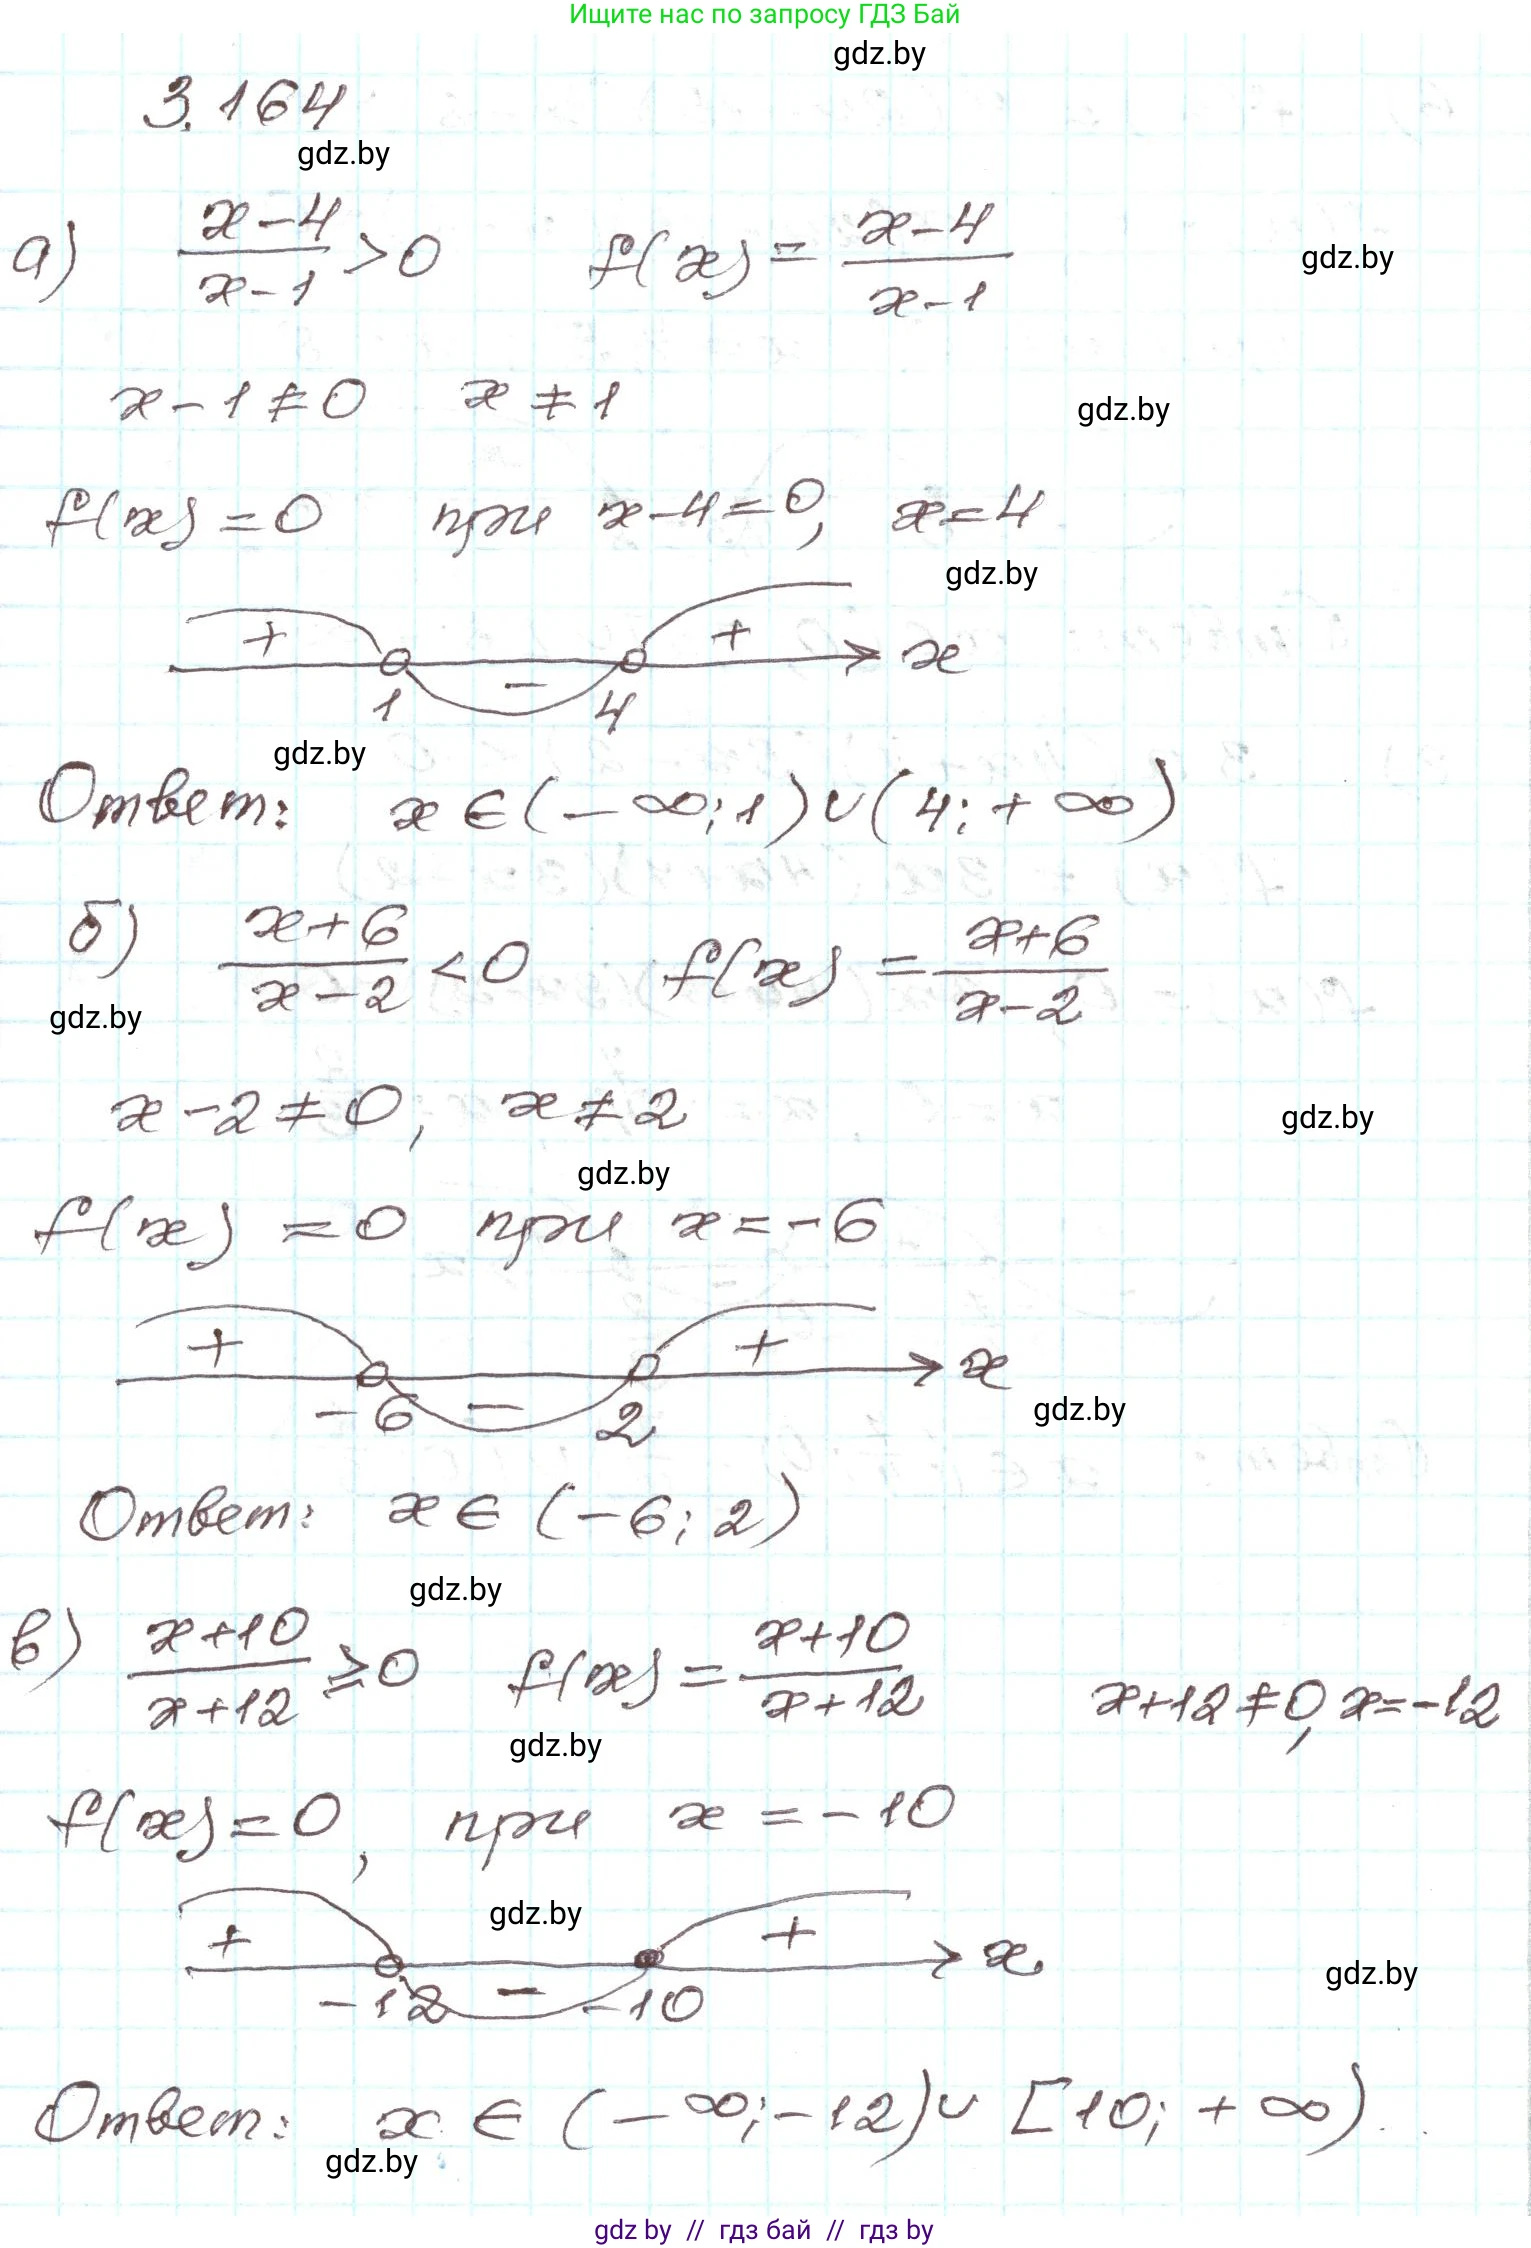 Ищите нас по запросу ГДЗ Бай
gdz.by
3.164
gdz.by
а) (x-4)/(x-1) > 0   f(x) = (x-4)/(x-1)
gdz.by
x-1≠0   x≠1
gdz.by
f(x)=0   при x-4=0, x=4
gdz.by
+ 1 - 4 + x
gdz.by
Ответ: x∈(-∞;1)∪(4;+∞)
б) (x+6)/(x-2) < 0   f(x) = (x+6)/(x-2)
gdz.by
x-2≠0, x≠2
gdz.by
gdz.by
f(x) = 0 при x=-6
+ -6 - 2 + x
gdz.by
Ответ: x∈(-6;2)
gdz.by
в) (x+10)/(x+12) ≥ 0   f(x) = (x+10)/(x+12)   x+12≠0, x=-12
gdz.by
f(x)=0, при x=-10
gdz.by
+ -12 - -10 + x
gdz.by
Ответ: x∈(-∞;-12)∪[10;+∞).
gdz.by
gdz by // гдз бай // гдз by